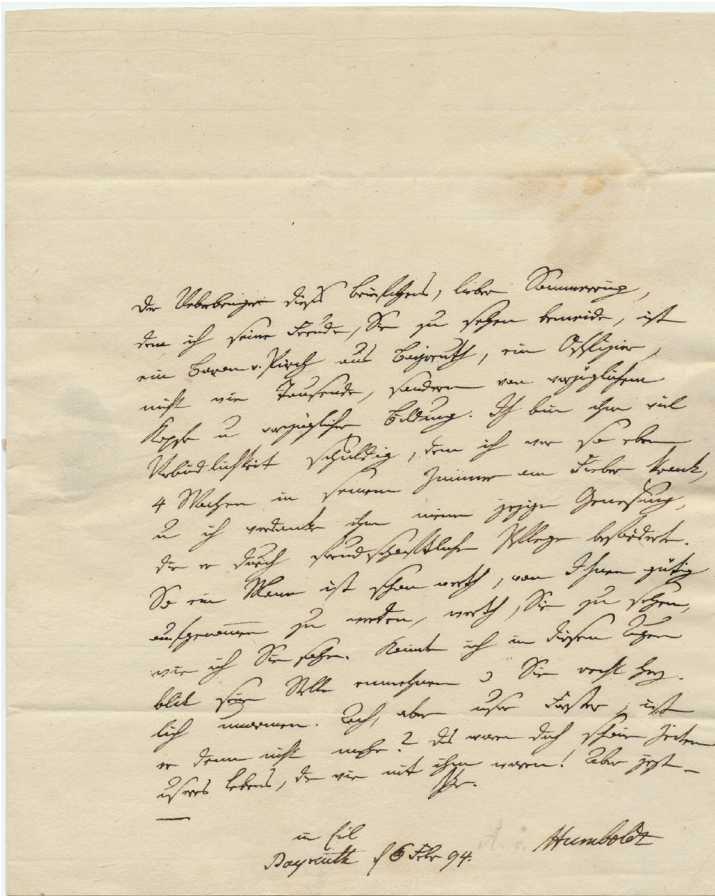 Der Ueberbringer dieses Briefchens, lieber Sömmerring,
dem ich seine Freude, Sie zu sehen beneide, ist
ein Baron v. Pirch aus Baireuth, ein Offizier,
nicht wie Tausende, sondern von vorzüglichem
Kopfe u vorzüglicher Bildung. Ich bin ihm viel
Verbindlichkeit schuldig, denn ich war so eben
4 Wochen in seinem Zimmer am Fieber krank,
u ich verdanke ihm meine jezige Genesung,
die er durch freundschaftliche Pflege beförderte.
So ein Mann ist schon werth, von Ihnen gütig
aufgenommen zu werden, werth, Sie zu sehen,
wie ich Sie sehe. Könnte ich in diesem Augen
blik seine Stelle einnehmen u Sie recht herz
lich umarmen. Ach, aber unser Forster, ist
er denn nicht mehr? Das waren doch schöne Zeiten
unsers Lebens, da wir mit ihm waren! Aber jezt —
Ihr
in Eil
Bayreuth d 6 Febr 94.
A. v. Humboldt